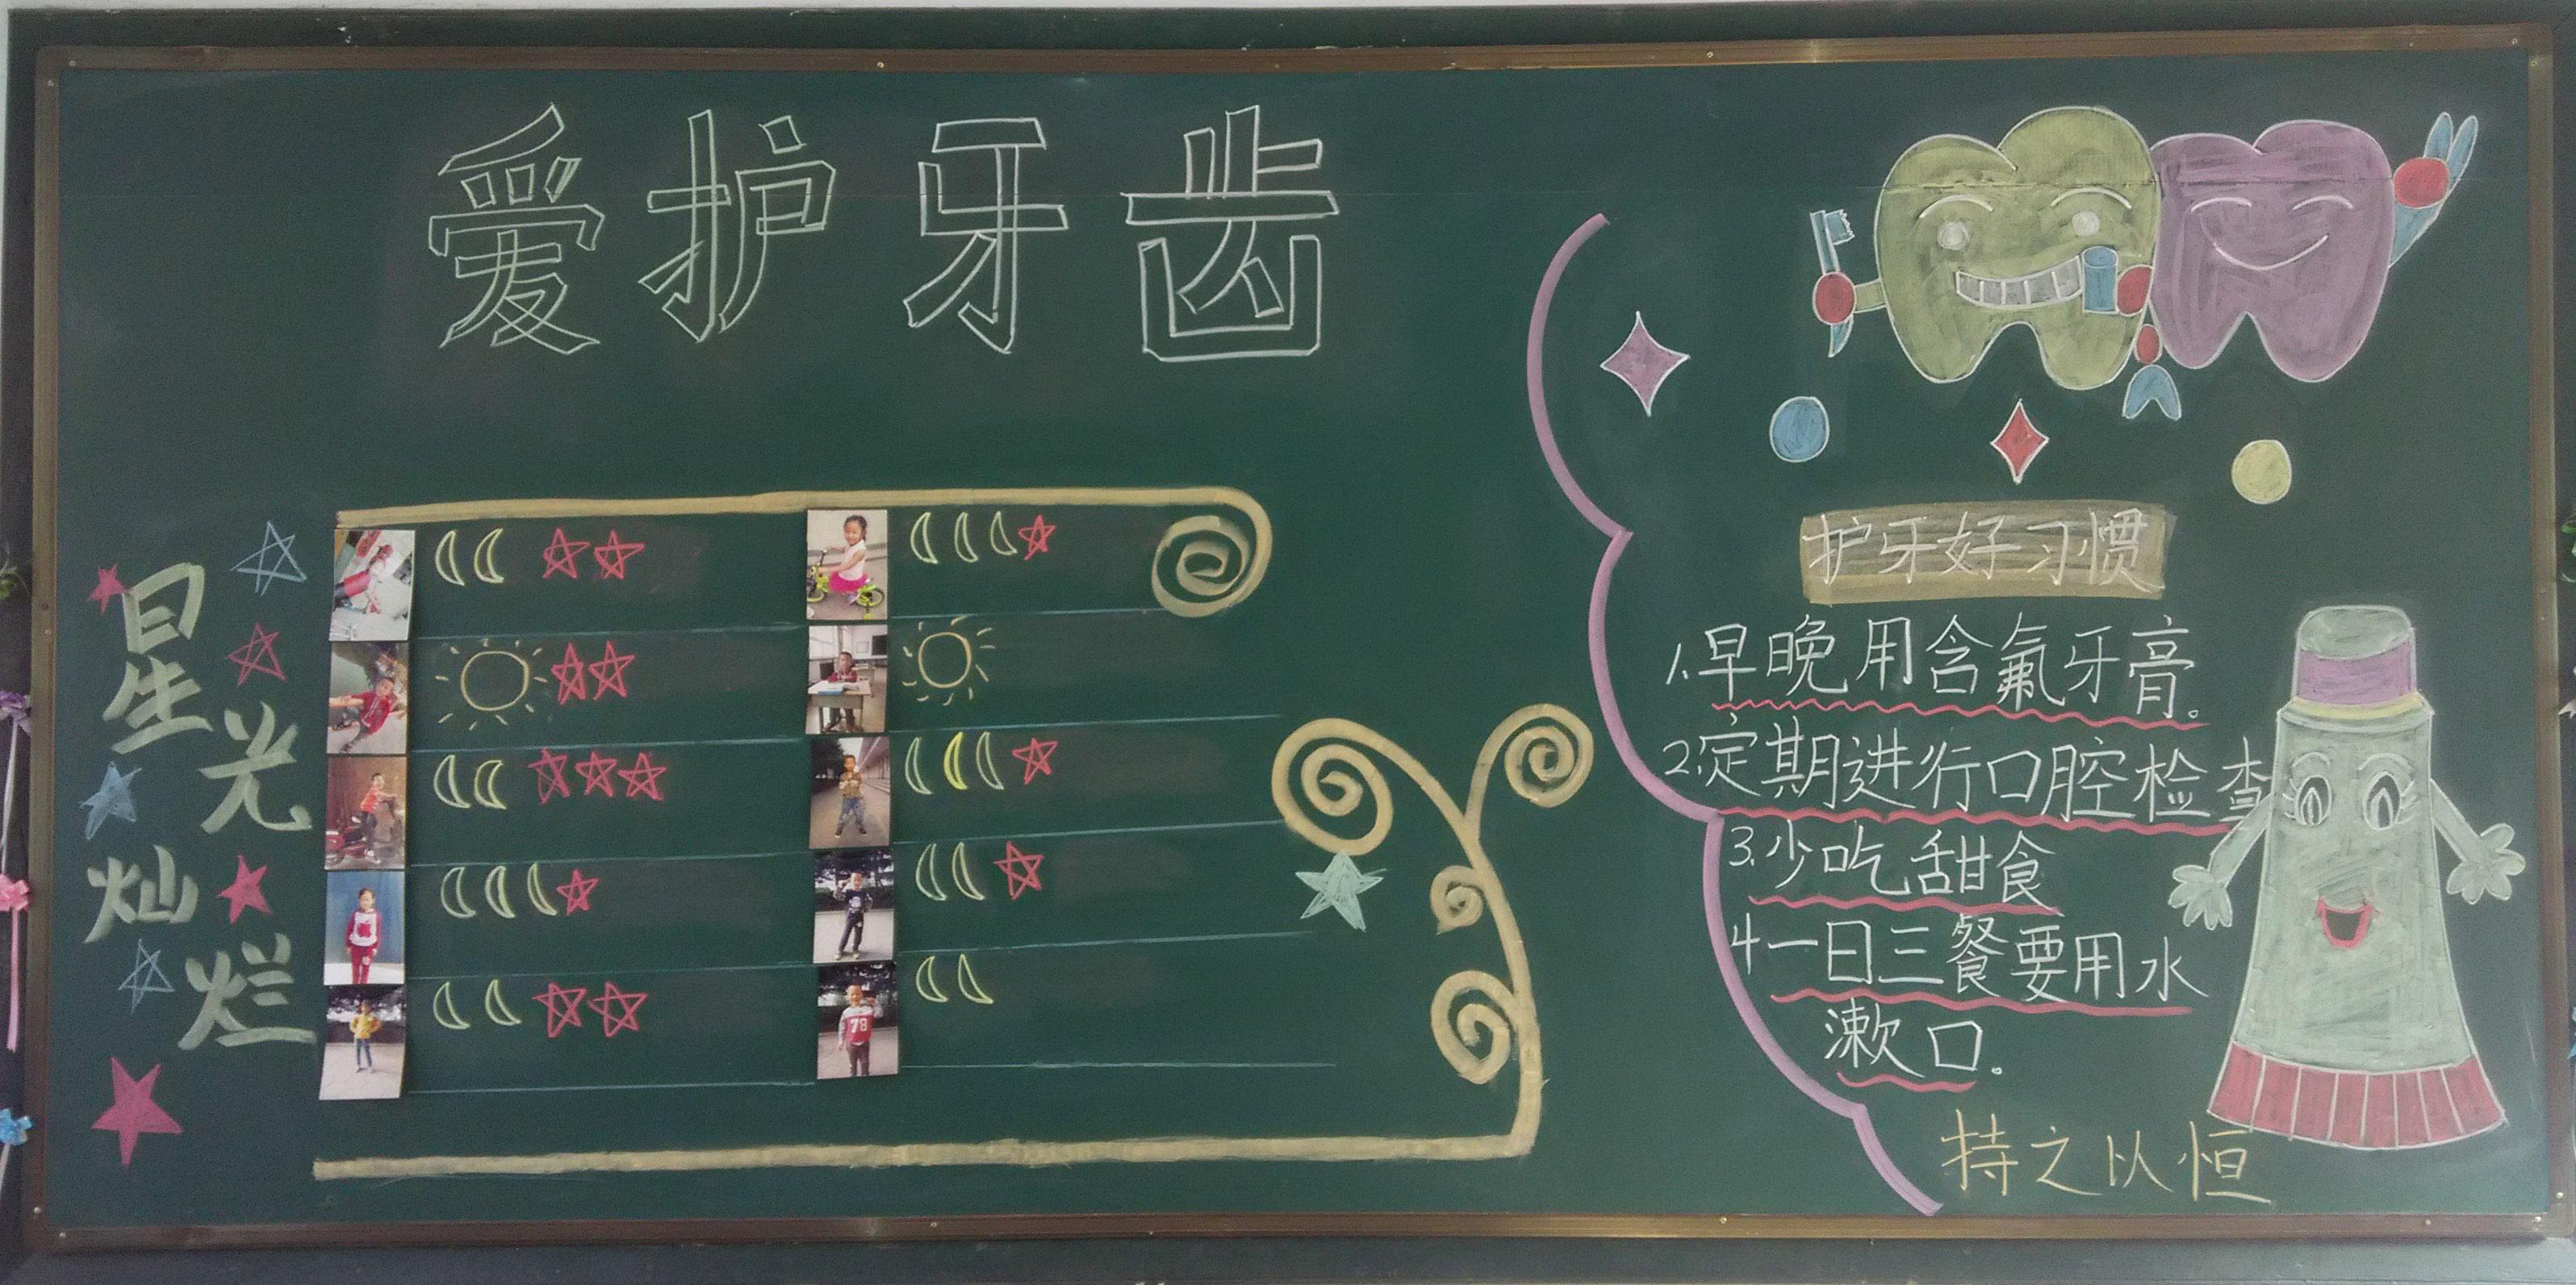 爱护牙齿
星光灿烂
护牙好习惯
1.早晚用含氟牙膏。
2.定期进行口腔检查
3.少吃甜食
4一日三餐要用水
漱口。
持之以恒
78